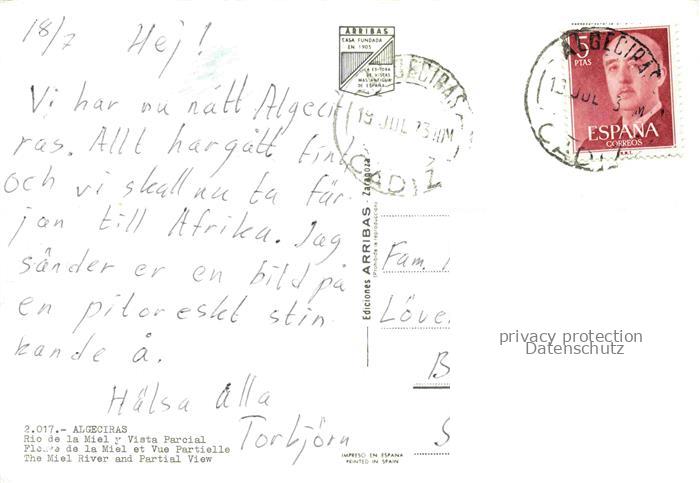 18/7 Hej!
Vi har nu nått Algecir
ras. Allt har gått fint
och vi skall nu ta fär-
jan till Afrika. Jag
sänder er en bild på
en pitoreskt stin-
kande å.
Hälsa alla
Torbjörn
2.017.- ALGECIRAS
Rio de la Miel y Vista Parcial
Fleuve de la Miel et Vue Partielle
The Miel River and Partial View
ARRIBAS
CASA FUNDADA
EN 1905
LA EDITORA
DE VISTAS
MAS ANTIGUA
DE ESPAÑA
Ediciones ARRIBAS - Zaragoza
(Prohibida la reproducción)
IMPRESO EN ESPAÑA
PRINTED IN SPAIN
ALGECIRAS
19 JUL 73
CADIZ
5
PTAS
ESPAÑA
CORREOS
ALGECIRAS
19 JUL
CADIZ
Fam.
Löve
B
S
privacy protection
Datenschutz